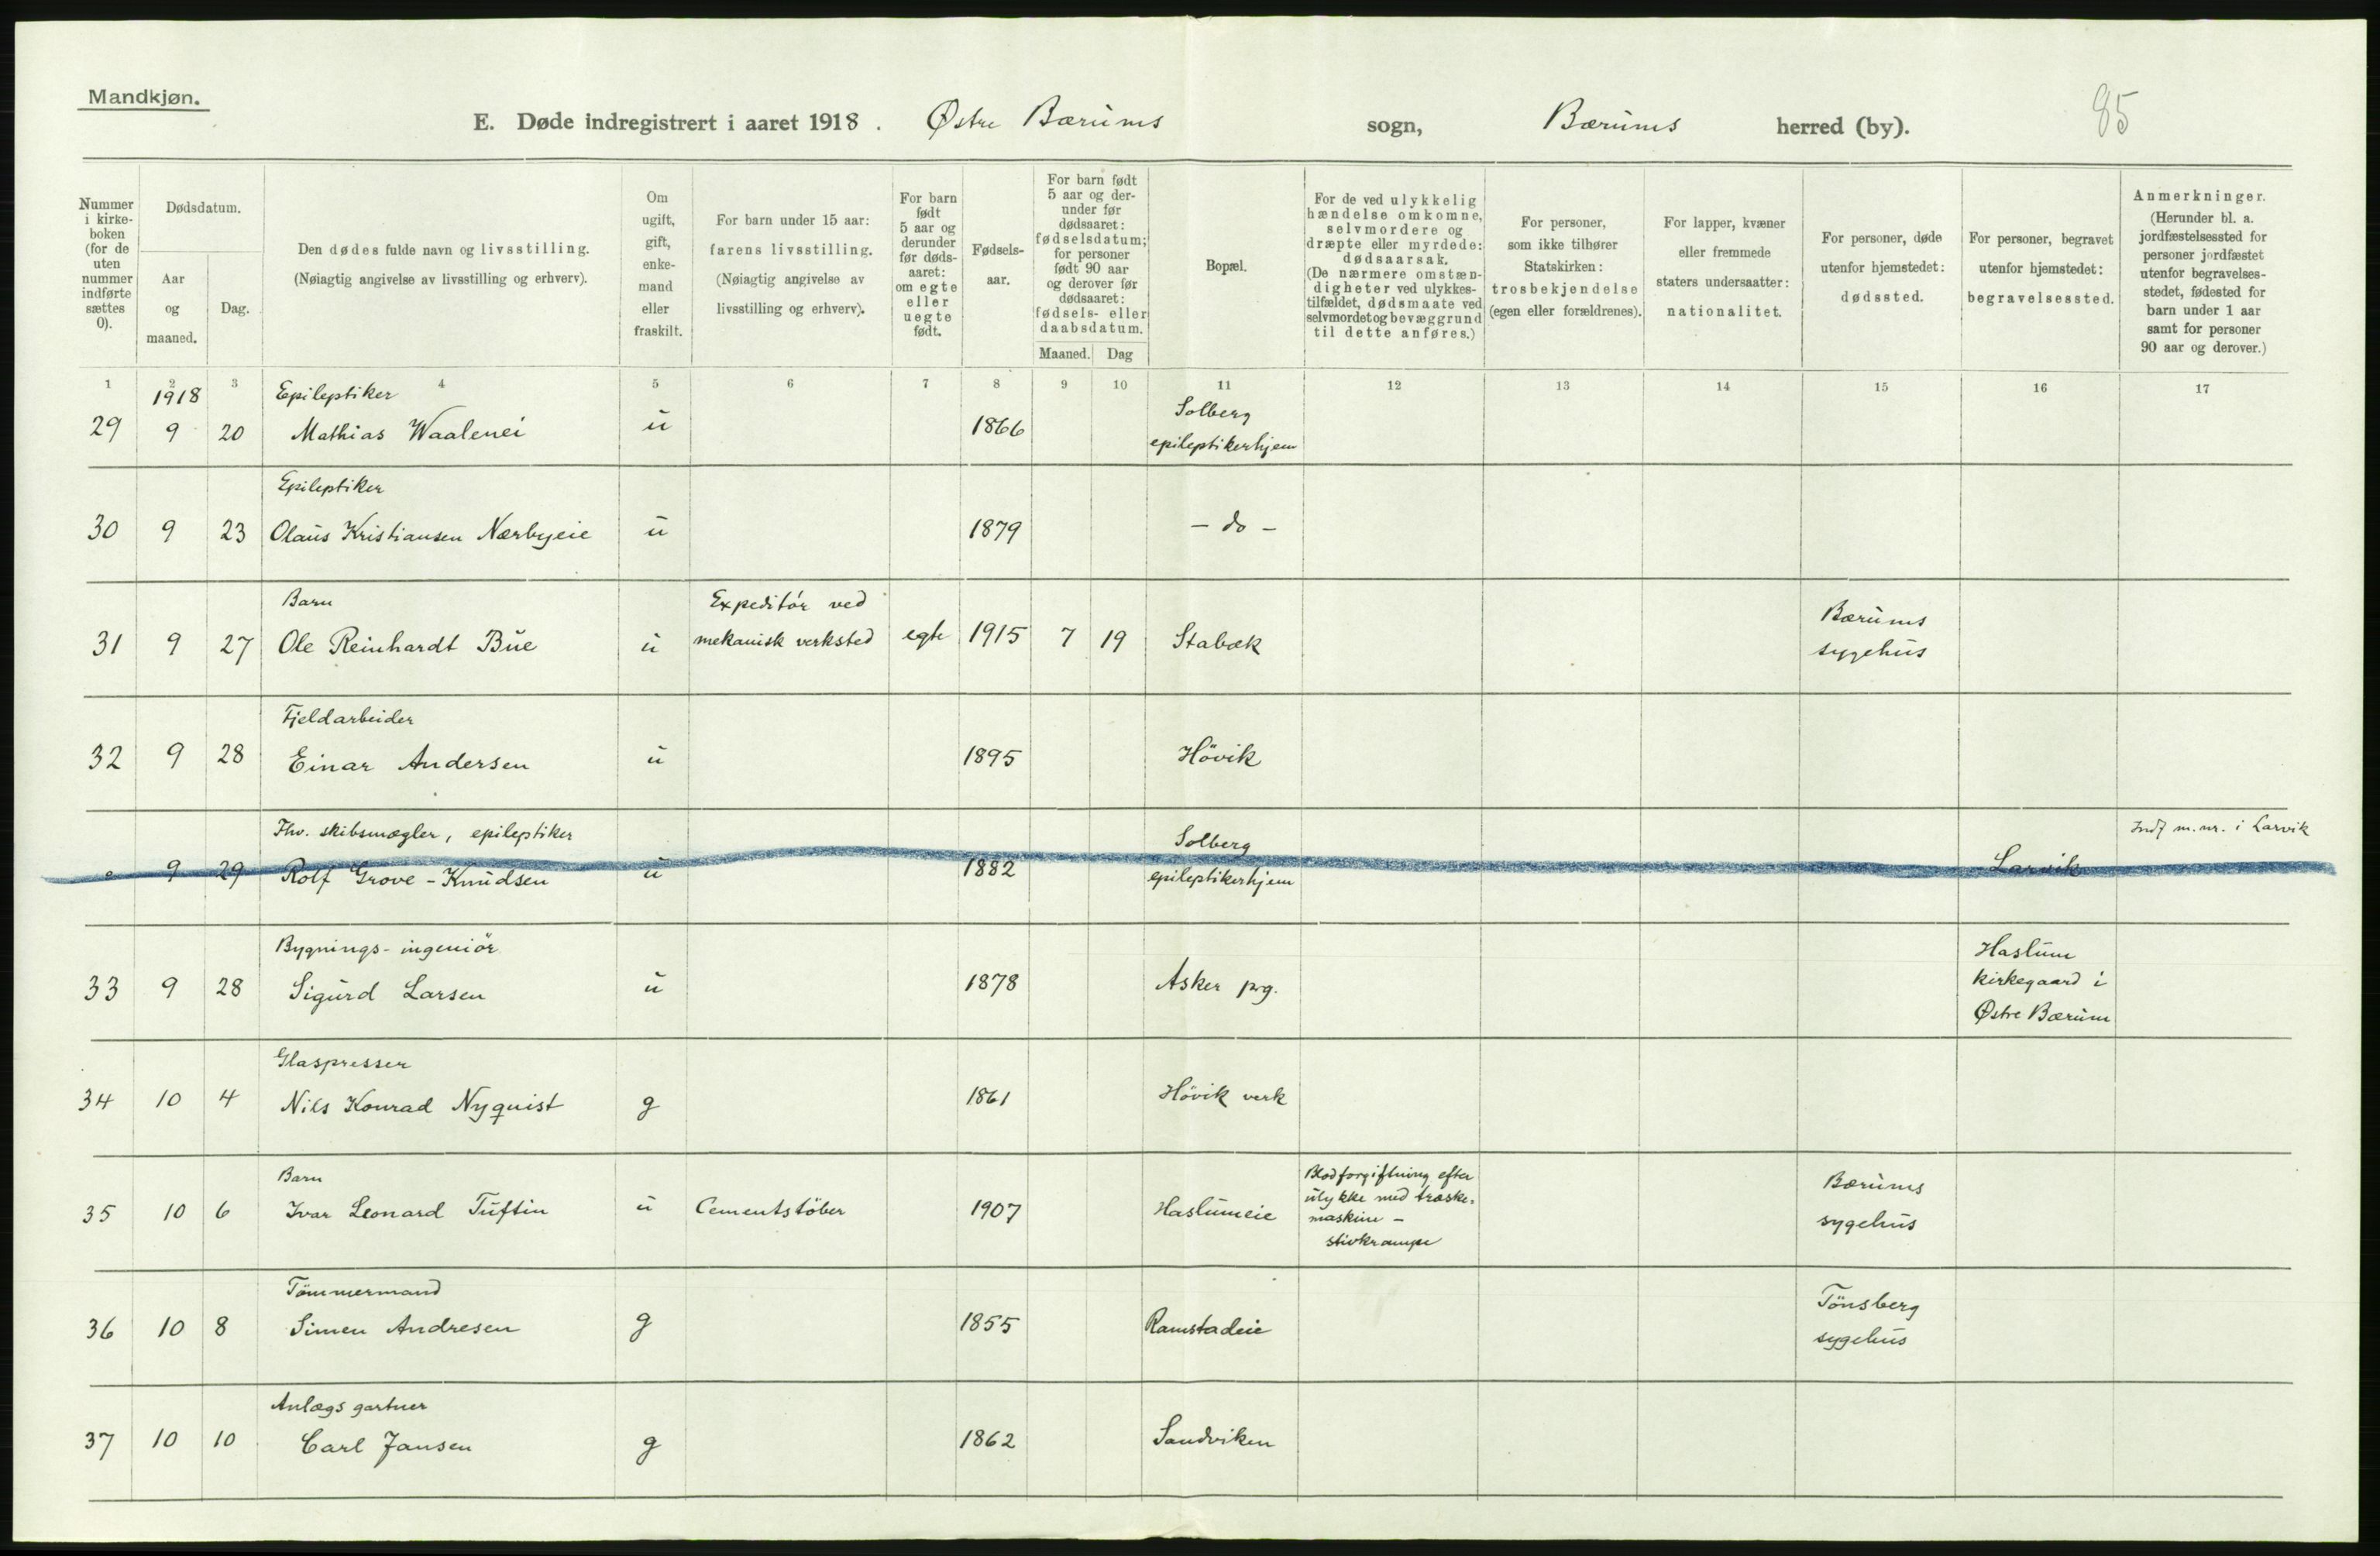 Mandkjøn.
E. Døde indregistrert i aaret 1918. Østre Bærums sogn, Bærums herred (by). 85
Nummer i kirkeboken (for de uten nummer indførte sættes 0).
Dødsdatum.
Aar og maaned.
Dag.
Den dødes fulde navn og livsstilling.
(Nøiagtig angivelse av livsstilling og erhverv).
Om ugift, gift, enkemand eller fraskilt.
For barn under 15 aar: farens livsstilling.
(Nøiagtig angivelse av livsstilling og erhverv).
For barn født 5 aar og derunder før dødsaaret: om egte eller uegte født.
Fødselsaar.
For barn født 5 aar og derunder før dødsaaret: fødselsdatum; for personer født 90 aar og derover før dødsaaret: fødsels- eller daabsdatum.
Maaned. Dag
Bopæl.
For de ved ulykkelig hændelse omkomne, selvmordere og dræpte eller myrdede: dødsaarsak.
(De nærmere omstændigheter ved ulykkestilfældet, dødsmaate ved selvmordet og bevæggrund til dette anføres.)
For personer, som ikke tilhører Statskirken: trosbekjendelse (egen eller forældrenes).
For lapper, kvæner eller fremmede staters undersaatter: nationalitet.
For personer, døde utenfor hjemstedet: dødssted.
For personer, begravet utenfor hjemstedet: begravelsessted.
Anmerkninger.
(Herunder bl. a. jordfæstelsessted for personer jordfæstet utenfor begravelsesstedet, fødested for barn under 1 aar samt for personer 90 aar og derover.)
1 2 3 4 5 6 7 8 9 10 11 12 13 14 15 16 17
1918 Epileptiker Solberg
29 9 20 Mathias Waalenei u 1866 epileptikerhjem
Epileptiker
30 9 23 Olaus Kristiansen Nærbyeie u 1879 - do -
Barn Expeditör ved Bærums
31 9 27 Ole Reinhardt Bue u mekanisk verksted egte 1915 7 19 Stabæk sygehus
Fjeldarbeider
32 9 28 Einar Andersen u 1895 Hövik
Fhv. skibsmægler, epileptiker Solberg Indf m. nr. i Larvik
0 9 29 Rolf Grove-Knudsen u 1882 epileptikerhjem Larvik
Bygnings-ingeniör Haslum
33 9 28 Sigurd Larsen u 1878 Asker prg. kirkegaard i
Østre Bærum
Glaspresser
34 10 4 Nils Konrad Nyquist g 1861 Hövik verk
Barn Blodforgiftning efter Bærums
35 10 6 Ivar Leonard Tuftin u Cementstöber 1907 Haslumeie ulykke med træske- sygehus
maskine -
stivkrampe
Tömmermand Tönsberg
36 10 8 Simen Andresen g 1855 Ramstadeie sygehus
Anlægsgartner
37 10 10 Carl Jansen g 1862 Sandviken